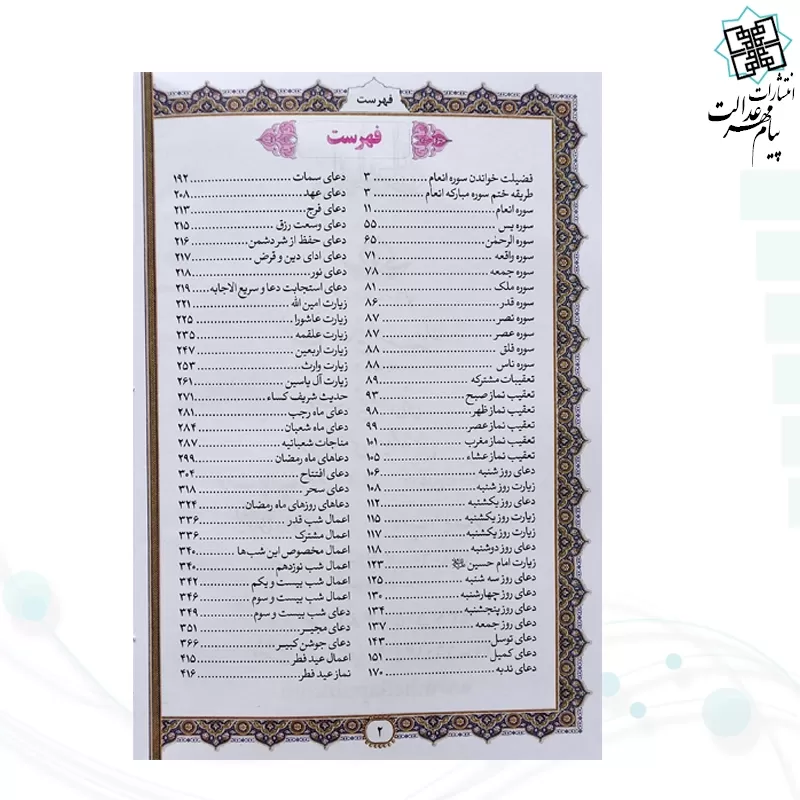 انتشارات
پیام مهر عدالت
فهرست
فهرست
فضیلت خواندن سوره انعام ............ ۳
طریقه ختم سوره مبارکه انعام ........ ۳
سوره انعام ............ ۱۱
سوره یس ............ ۵۵
سوره الرحمٰن ............ ۶۵
سوره واقعه ............ ۷۱
سوره جمعه ............ ۷۸
سوره ملک ............ ۸۱
سوره قدر ............ ۸۶
سوره نصر ............ ۸۷
سوره عصر ............ ۸۷
سوره فلق ............ ۸۸
سوره ناس ............ ۸۸
تعقیبات مشترکه ............ ۸۹
تعقیب نماز صبح ............ ۹۳
تعقیب نماز ظهر ............ ۹۸
تعقیب نماز عصر ............ ۹۹
تعقیب نماز مغرب ............ ۱۰۱
تعقیب نماز عشاء ............ ۱۰۵
دعای روز شنبه ............ ۱۰۶
زیارت روز شنبه ............ ۱۰۸
دعای روز یکشنبه ............ ۱۱۲
زیارت روز یکشنبه ............ ۱۱۵
زیارت روز یکشنبه ............ ۱۱۷
دعای روز دوشنبه ............ ۱۱۸
زیارت امام حسین ............ ۱۲۳
دعای روز سه شنبه ............ ۱۲۵
دعای روز چهارشنبه ............ ۱۳۰
دعای روز پنجشنبه ............ ۱۳۴
دعای روز جمعه ............ ۱۳۷
دعای توسل ............ ۱۴۳
دعای کمیل ............ ۱۵۱
دعای ندبه ............ ۱۷۰
دعای سمات ............ ۱۹۲
دعای عهد ............ ۲۰۸
دعای فرج ............ ۲۱۳
دعای وسعت رزق ............ ۲۱۵
دعای حفظ از شر دشمن ............ ۲۱۶
دعای ادای دین و قرض ............ ۲۱۷
دعای نور ............ ۲۱۸
دعای استجابت دعا و سریع الاجابه .... ۲۱۹
زیارت امین الله ............ ۲۲۱
زیارت عاشورا ............ ۲۲۵
زیارت علقمه ............ ۲۳۵
زیارت اربعین ............ ۲۴۷
زیارت وارث ............ ۲۵۳
زیارت آل یاسین ............ ۲۶۱
حدیث شریف کساء ............ ۲۷۱
دعای ماه رجب ............ ۲۸۱
دعای ماه شعبان ............ ۲۸۴
مناجات شعبانیه ............ ۲۸۷
دعاهای ماه رمضان ............ ۲۹۹
دعای افتتاح ............ ۳۰۴
دعای سحر ............ ۳۱۸
دعاهای روزهای ماه رمضان ............ ۳۲۴
اعمال شب قدر ............ ۳۳۶
اعمال مشترک ............ ۳۳۶
اعمال مخصوص این شب‌ها ............ ۳۴۰
اعمال شب نوزدهم ............ ۳۴۰
اعمال شب بیست و یکم ............ ۳۴۲
اعمال شب بیست و سوم ............ ۳۴۶
دعای شب بیست و سوم ............ ۳۴۹
دعای مجیر ............ ۳۵۱
دعای جوشن کبیر ............ ۳۶۶
اعمال عید فطر ............ ۴۱۵
نماز عید فطر ............ ۴۱۶
۲